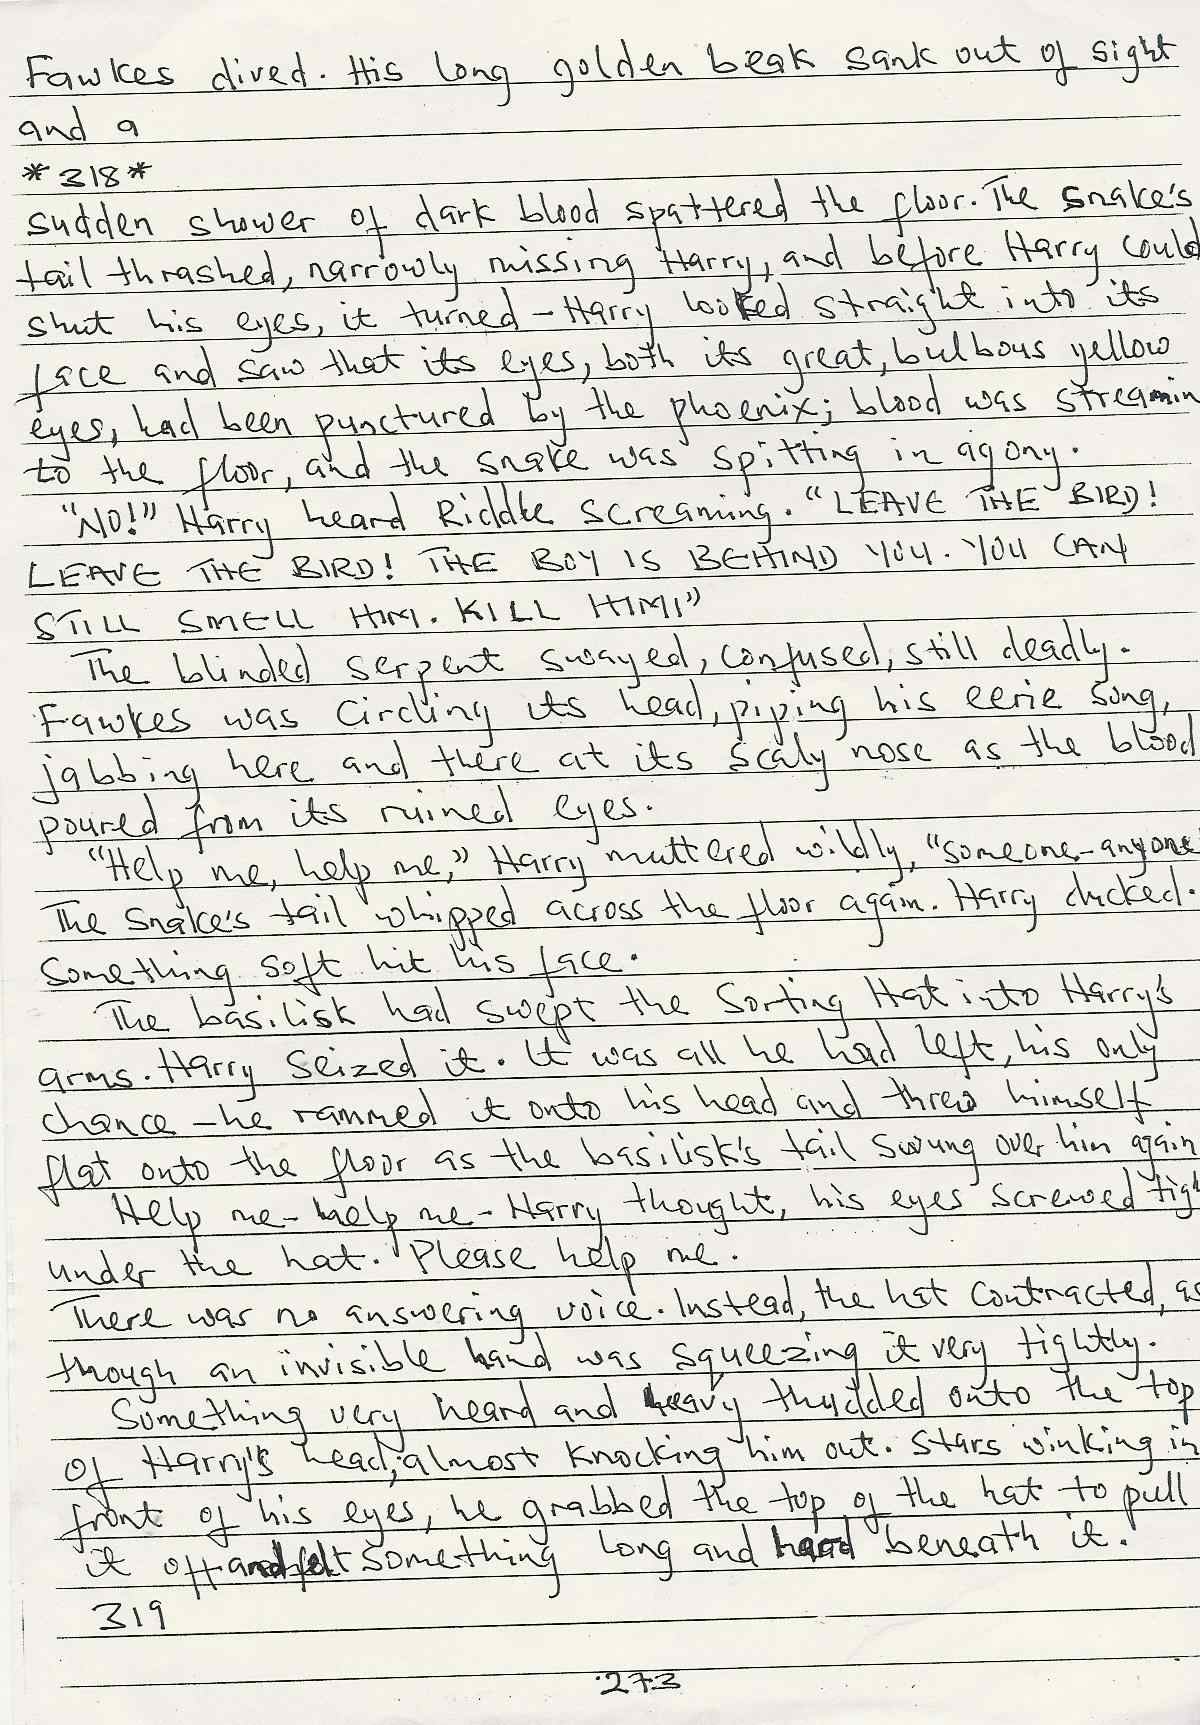 Fawkes dived. His long golden beak sank out of sight
and a
*318*
sudden shower of dark blood spattered the floor. The snake's
tail thrashed, narrowly missing Harry, and before Harry could
shut his eyes, it turned - Harry looked straight into its
face and saw that its eyes, both its great, bulbous yellow
eyes, had been punctured by the phoenix; blood was streamin
to the floor, and the snake was spitting in agony.
"NO!" Harry heard Riddle screaming. "LEAVE THE BIRD!
LEAVE THE BIRD! THE BOY IS BEHIND YOU. YOU CAN
STILL SMELL HIM. KILL HIM!"
The blinded serpent swayed, confused, still deadly.
Fawkes was circling its head, piping his eerie song,
jabbing here and there at its scaly nose as the blood
poured from its ruined eyes.
"Help me, help me," Harry muttered wildly, "someone - anyone
The snake's tail whipped across the floor again. Harry ducked.
Something soft hit his face.
The basilisk had swept the Sorting Hat into Harry's
arms. Harry seized it. It was all he had left, his only
chance - he rammed it onto his head and threw himself
flat onto the floor as the basilisk's tail swung over him again
Help me - help me - Harry thought, his eyes screwed tigh
under the hat. Please help me.
There was no answering voice. Instead, the hat contracted, as
though an invisible hand was squeezing it very tightly.
Something very heard and heavy thudded onto the top
of Harry's head, almost knocking him out. Stars winking in
front of his eyes, he grabbed the top of the hat to pull
it off and felt something long and hard beneath it.
319
273